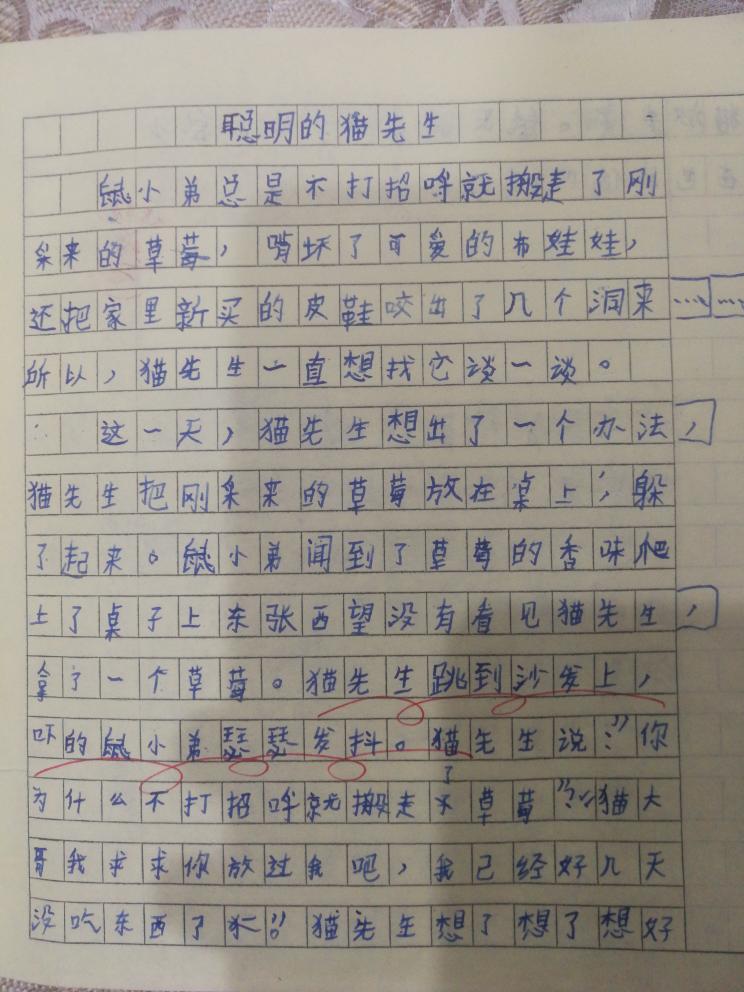 聪明的猫先生
鼠小弟总是不打招呼就搬走了刚
采来的草莓，啃坏了可爱的布娃娃，
还把家里新买的皮鞋咬出了几个洞来……
所以，猫先生一直想找它谈一谈。
这一天，猫先生想出了一个办法，
猫先生把刚采来的草莓放在桌上，躲
了起来。鼠小弟闻到了草莓的香味爬
上了桌子上东张西望没有看见猫先生，
拿了一个草莓。猫先生跳到沙发上，
吓的鼠小弟瑟瑟发抖。猫先生说：“你
为什么不打招呼就搬走了草莓”？“猫大
哥我求求你放过我吧，我已经好几天
没吃东西了”。猫先生想了想了想好